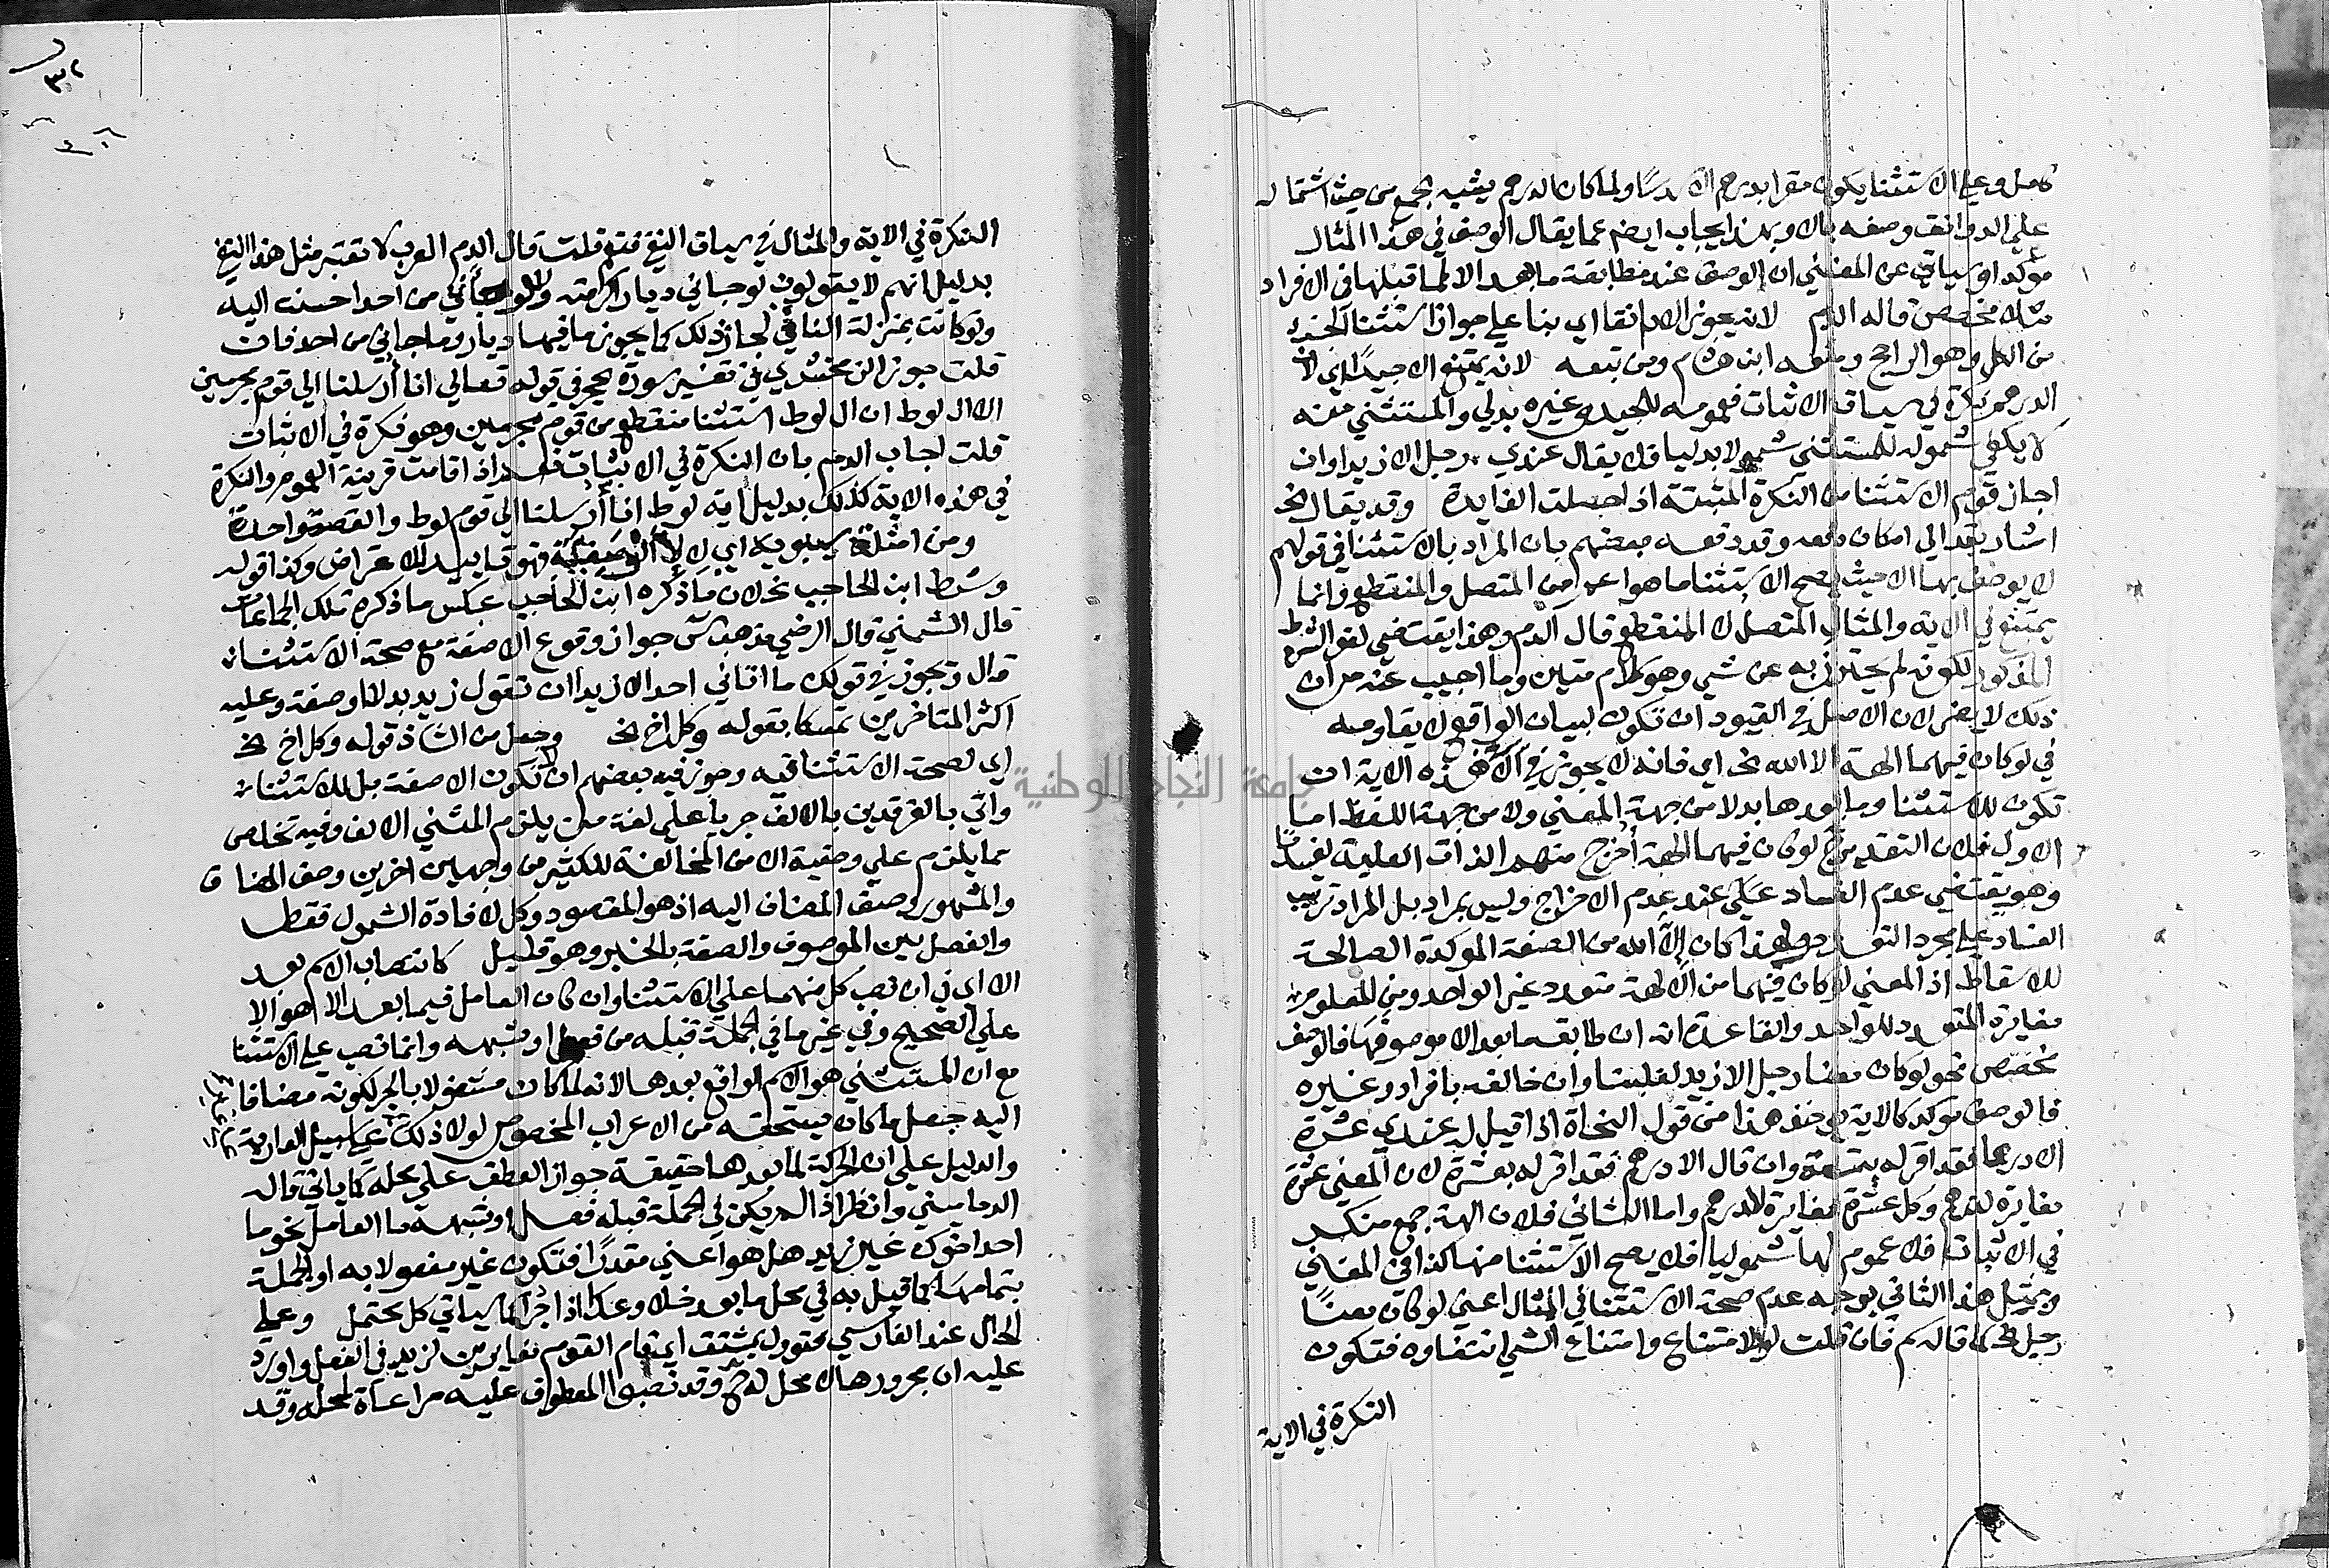 كامل وعلى الاستثنا يكون مقرا بدرهم الا سدسا ولما كان الدرهم يشبه الجمع من حيث اشتماله
على الدوانق وصفه بالا وبهذا يجاب ايضا عما يقال الوصف في هذا المثال
مؤكدا وسياتي عن المغني ان الوصف عند مطابقة ما بعد الا لما قبلها في الافراد
مثلا مخصص قاله الدم لانه يجوز الا دانقا اي بنا على جواز استثنا الجزء
من الكل وهو الراجح ومنعه ابن هشام ومن تبعه لانه يمتنع الا جيدا اي لان
الدرهم نكرة في سياق الاثبات فعمومه للجيد وغيره بدلي والمستثني منه
لا يكفي شموله للمستثني شمولا بدليا فلا يقال عندي رجل الا زيدا وان
اجاز قوم الاستثنا من النكرة المثبتة اذا حصلت الفايدة وقد يقال الخ
اشار بقد الى امكان دفعه وقد دفعه بعضهم بان المراد بالاستثنا في قولهم
لا يوصف بها الا حيث يصح الاستثنا ما هو اعم من المتصل والمنقطع وانما
يمتنع في الاية والمثال المتصل لا المنقطع قال الدم وهذا يقتضي لغو الشرط
المذكور لكونه لم يحترز به عن شي وهو كلام متين وما اجيب عنه من ان
ذلك لا يضر لان الاصل في القيود ان تكون لبيان الواقع لا يقاومه
في لو كان فيهما الهة الا الله الخ اي فانه لا يجوز في الا في هذه الاية ان
تكون للاستثنا وما بعدها بدلا من جهة المعني ولا من جهة اللفظ اما
الاول فلان التقدير ح لو كان فيهما الهة اخرج منهم الذات العلية لفسدتا
وهو يقتضي عدم الفساد على عند عدم الاخراج وليس بمراد بل المراد ترتيب
الفساد على مجرد التعدد ولهذا كان الا الله من الصفة الموكدة الصالحة
للاسقاط اذ المعني لو كان فيهما من الالهة متعدد غير الواحد ومن المعلوم
مغايرة المتعدد للواحد والقاعدة انه ان طابق ما بعد الا موصوفها فالوصف
مخصص نحو لو كان معنا رجل الا زيد لغلبنا وان خالفه بافراد وغيره
فالوصف موكد كالاية ومن هذا من قول النحاة اذا قيل له عندي عشرة
الا درهما فقد اقر له بتسعة وان قال الا درهم فقد اقر له بعشرة لان المعني عشرة
مغايرة لدرهم وكل عشرة مغايرة للدرهم واما الثاني فلان الهة جمع منكر
في الاثبات فلا عموم لها شموليا فلا يصح الاستثنا منها كذا في المغني
وبمثل هذا الثاني يوجه عدم صحة الاستثنا في المثال اعني لو كان معنا
رجل الخ كما قاله م فان قلت لو للامتناع وامتناع الشي انتفاوه فتكون
النكرة في الاية
النكرة في الاية والمثال في سياق النفي فتعم قلت قال الدم العرب لا تعتبر مثل هذا النفي
بدليل انهم لا يقولون لو جاني ديار اكرمته ولا لو جاني من احد احسنت اليه
ولو كانت بمنزلة النافي لجاز ذلك كما يجوز ما فيها ديار وما جاني من احد فان
قلت جوز الزمخشري في تفسير سورة الحجر في قوله تعالي انا ارسلنا الى قوم مجرمين
الا ال لوط ان ال لوط استثنا منقطع من قوم مجرمين وهو نكرة في الاثبات
قلت اجاب الدم بان النكرة في الاثبات اذا قامت قرينة العموم والنكرة
في هذه الاية كذلك بدليل اية لوط انا ارسلنا الى قوم لوط والقصة واحدة
ومن امثلة سيبويه اي لالا الوصفية فهو تاييد للاعتراض وكذا قوله
وشرط ابن الحاجب الخ لان ما ذكره ابن الحاجب عكس ما ذكره تلك الجماعات
قال الشمني قال الرضي مذهب س جواز وقوع الا صفة مع صحة الاستثنا
قال وتجوز في قولك ما اتاني احد الا زيد ان تقول زيد بدلا او صفة وعليه
اكثر المتاخرين تمسكا بقوله وكل اخ الخ وجعل من الشاذ قوله وكل اخ الخ
اي لصحة الاستثنا فيه وجوز فيه بعضهم ان لا تكون الا صفة بل للاستثنا
واتي بالفرقدين بالالف جريا على لغة من يلزم المثني الالف وفيه تخلص
مما يلزم علي وصفية الا من المخالفة للكثير من وجهين اخرين وصف المضاف
والمشهور وصف المضاف اليه اذ هو المقصود وكل لافادة الشمول فقط
والفصل بين الموصوف والصفة بالخبر وهو قليل كانتصاب الاسم بعد
الا اي في ان نصب كل منهما على الاستثنا وان كان العامل فيما بعد الا هو الا
على الصحيح وفي غير ما في الجملة قبله من فعل او شبهه وانما نصب على الاستثنا
مع ان المستثني هو الاسم الواقع بعدها لانه لما كان مشغولا بالجر لكونه مضافا
اليه جعل ما كان يستحقه من الاعراب المخصوص لولا ذلك على سبيل العارية
والدليل على ان الحركة لما بعدها حقيقة جواز العطف على محله كما ياتي قال
الدماميني وانظر اذا لم يكن في الجملة قبله فعل او شبهه ما العامل نحو ما
احد اخوك غير زيد هل هو اعني مقدرا فتكون غير مفعولا به او الجملة
بتمامها كما قيل به في محل ما بعد خلا وعدا اذا جرا كما سياتي كل محتمل وعلى
الحال عند الفارسي فتوول بمشتق اي قام القوم مغايرين لزيد في الفعل واورد
عليه ان مجرورها لا محل له ح وقد نصبوا المعطوف عليه مراعاة لمحله وقد
جامعة النجاح الوطنية